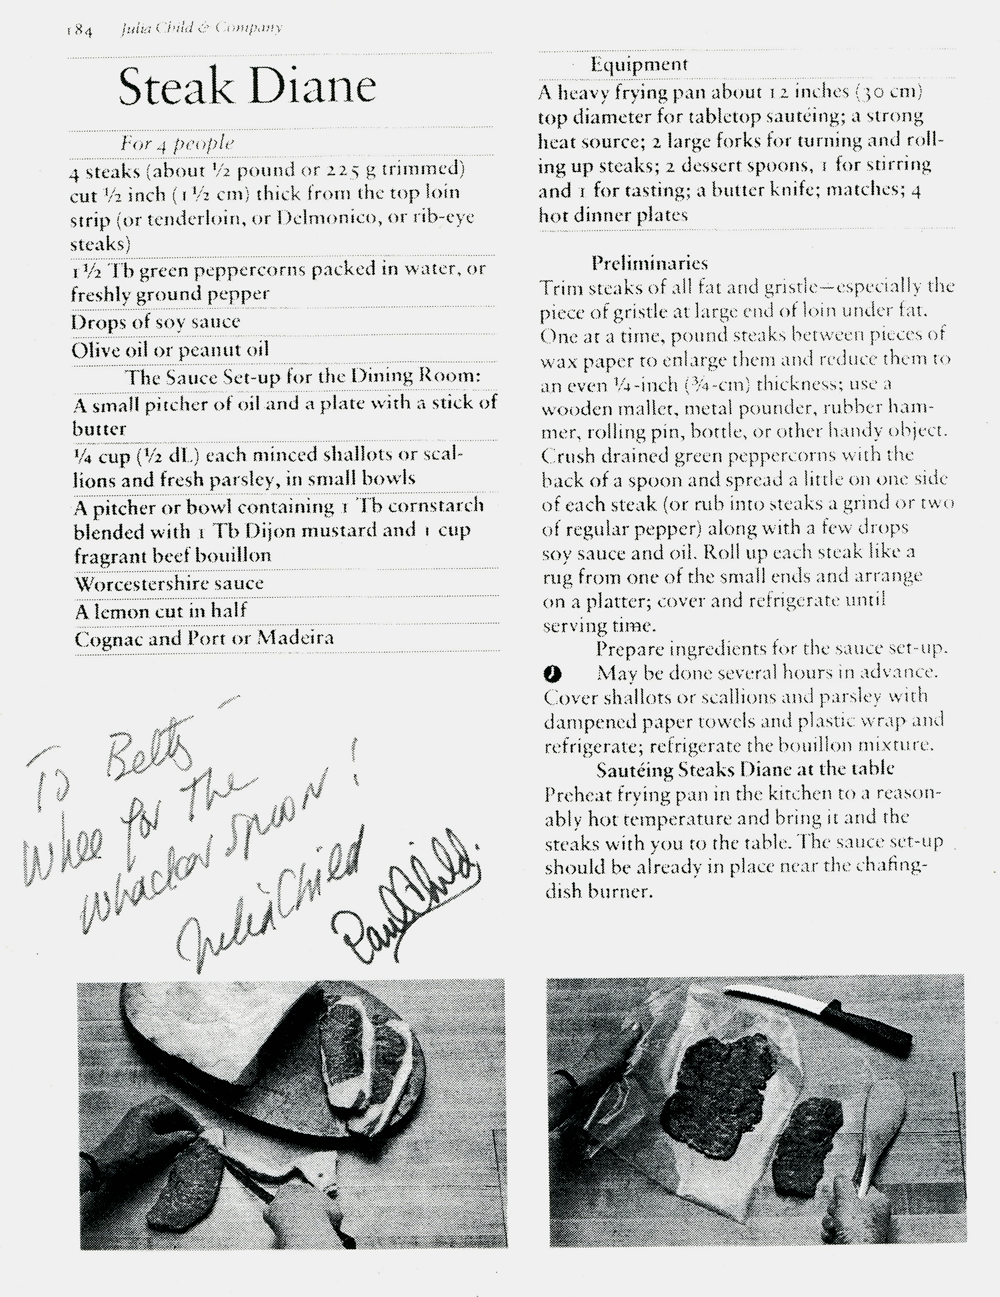 184 Julia Child & Company
Steak Diane
For 4 people
4 steaks (about ½ pound or 225 g trimmed)
cut ½ inch (1 ½ cm) thick from the top loin
strip (or tenderloin, or Delmonico, or rib-eye
steaks)
1 ½ Tb green peppercorns packed in water, or
freshly ground pepper
Drops of soy sauce
Olive oil or peanut oil
The Sauce Set-up for the Dining Room:
A small pitcher of oil and a plate with a stick of
butter
¼ cup (½ dL) each minced shallots or scal-
lions and fresh parsley, in small bowls
A pitcher or bowl containing 1 Tb cornstarch
blended with 1 Tb Dijon mustard and 1 cup
fragrant beef bouillon
Worcestershire sauce
A lemon cut in half
Cognac and Port or Madeira
To Betty –
Whee for the
whacker spoon!
Julia Child
Paul Child.
Equipment
A heavy frying pan about 12 inches (30 cm)
top diameter for tabletop sautéing; a strong
heat source; 2 large forks for turning and roll-
ing up steaks; 2 dessert spoons, 1 for stirring
and 1 for tasting; a butter knife; matches; 4
hot dinner plates
Preliminaries
Trim steaks of all fat and gristle—especially the
piece of gristle at large end of loin under fat.
One at a time, pound steaks between pieces of
wax paper to enlarge them and reduce them to
an even ¼-inch (¾-cm) thickness; use a
wooden mallet, metal pounder, rubber ham-
mer, rolling pin, bottle, or other handy object.
Crush drained green peppercorns with the
back of a spoon and spread a little on one side
of each steak (or rub into steaks a grind or two
of regular pepper) along with a few drops
soy sauce and oil. Roll up each steak like a
rug from one of the small ends and arrange
on a platter; cover and refrigerate until
serving time.
Prepare ingredients for the sauce set-up.
May be done several hours in advance.
Cover shallots or scallions and parsley with
dampened paper towels and plastic wrap and
refrigerate; refrigerate the bouillon mixture.
Sautéing Steaks Diane at the table
Preheat frying pan in the kitchen to a reason-
ably hot temperature and bring it and the
steaks with you to the table. The sauce set-up
should be already in place near the chafing-
dish burner.